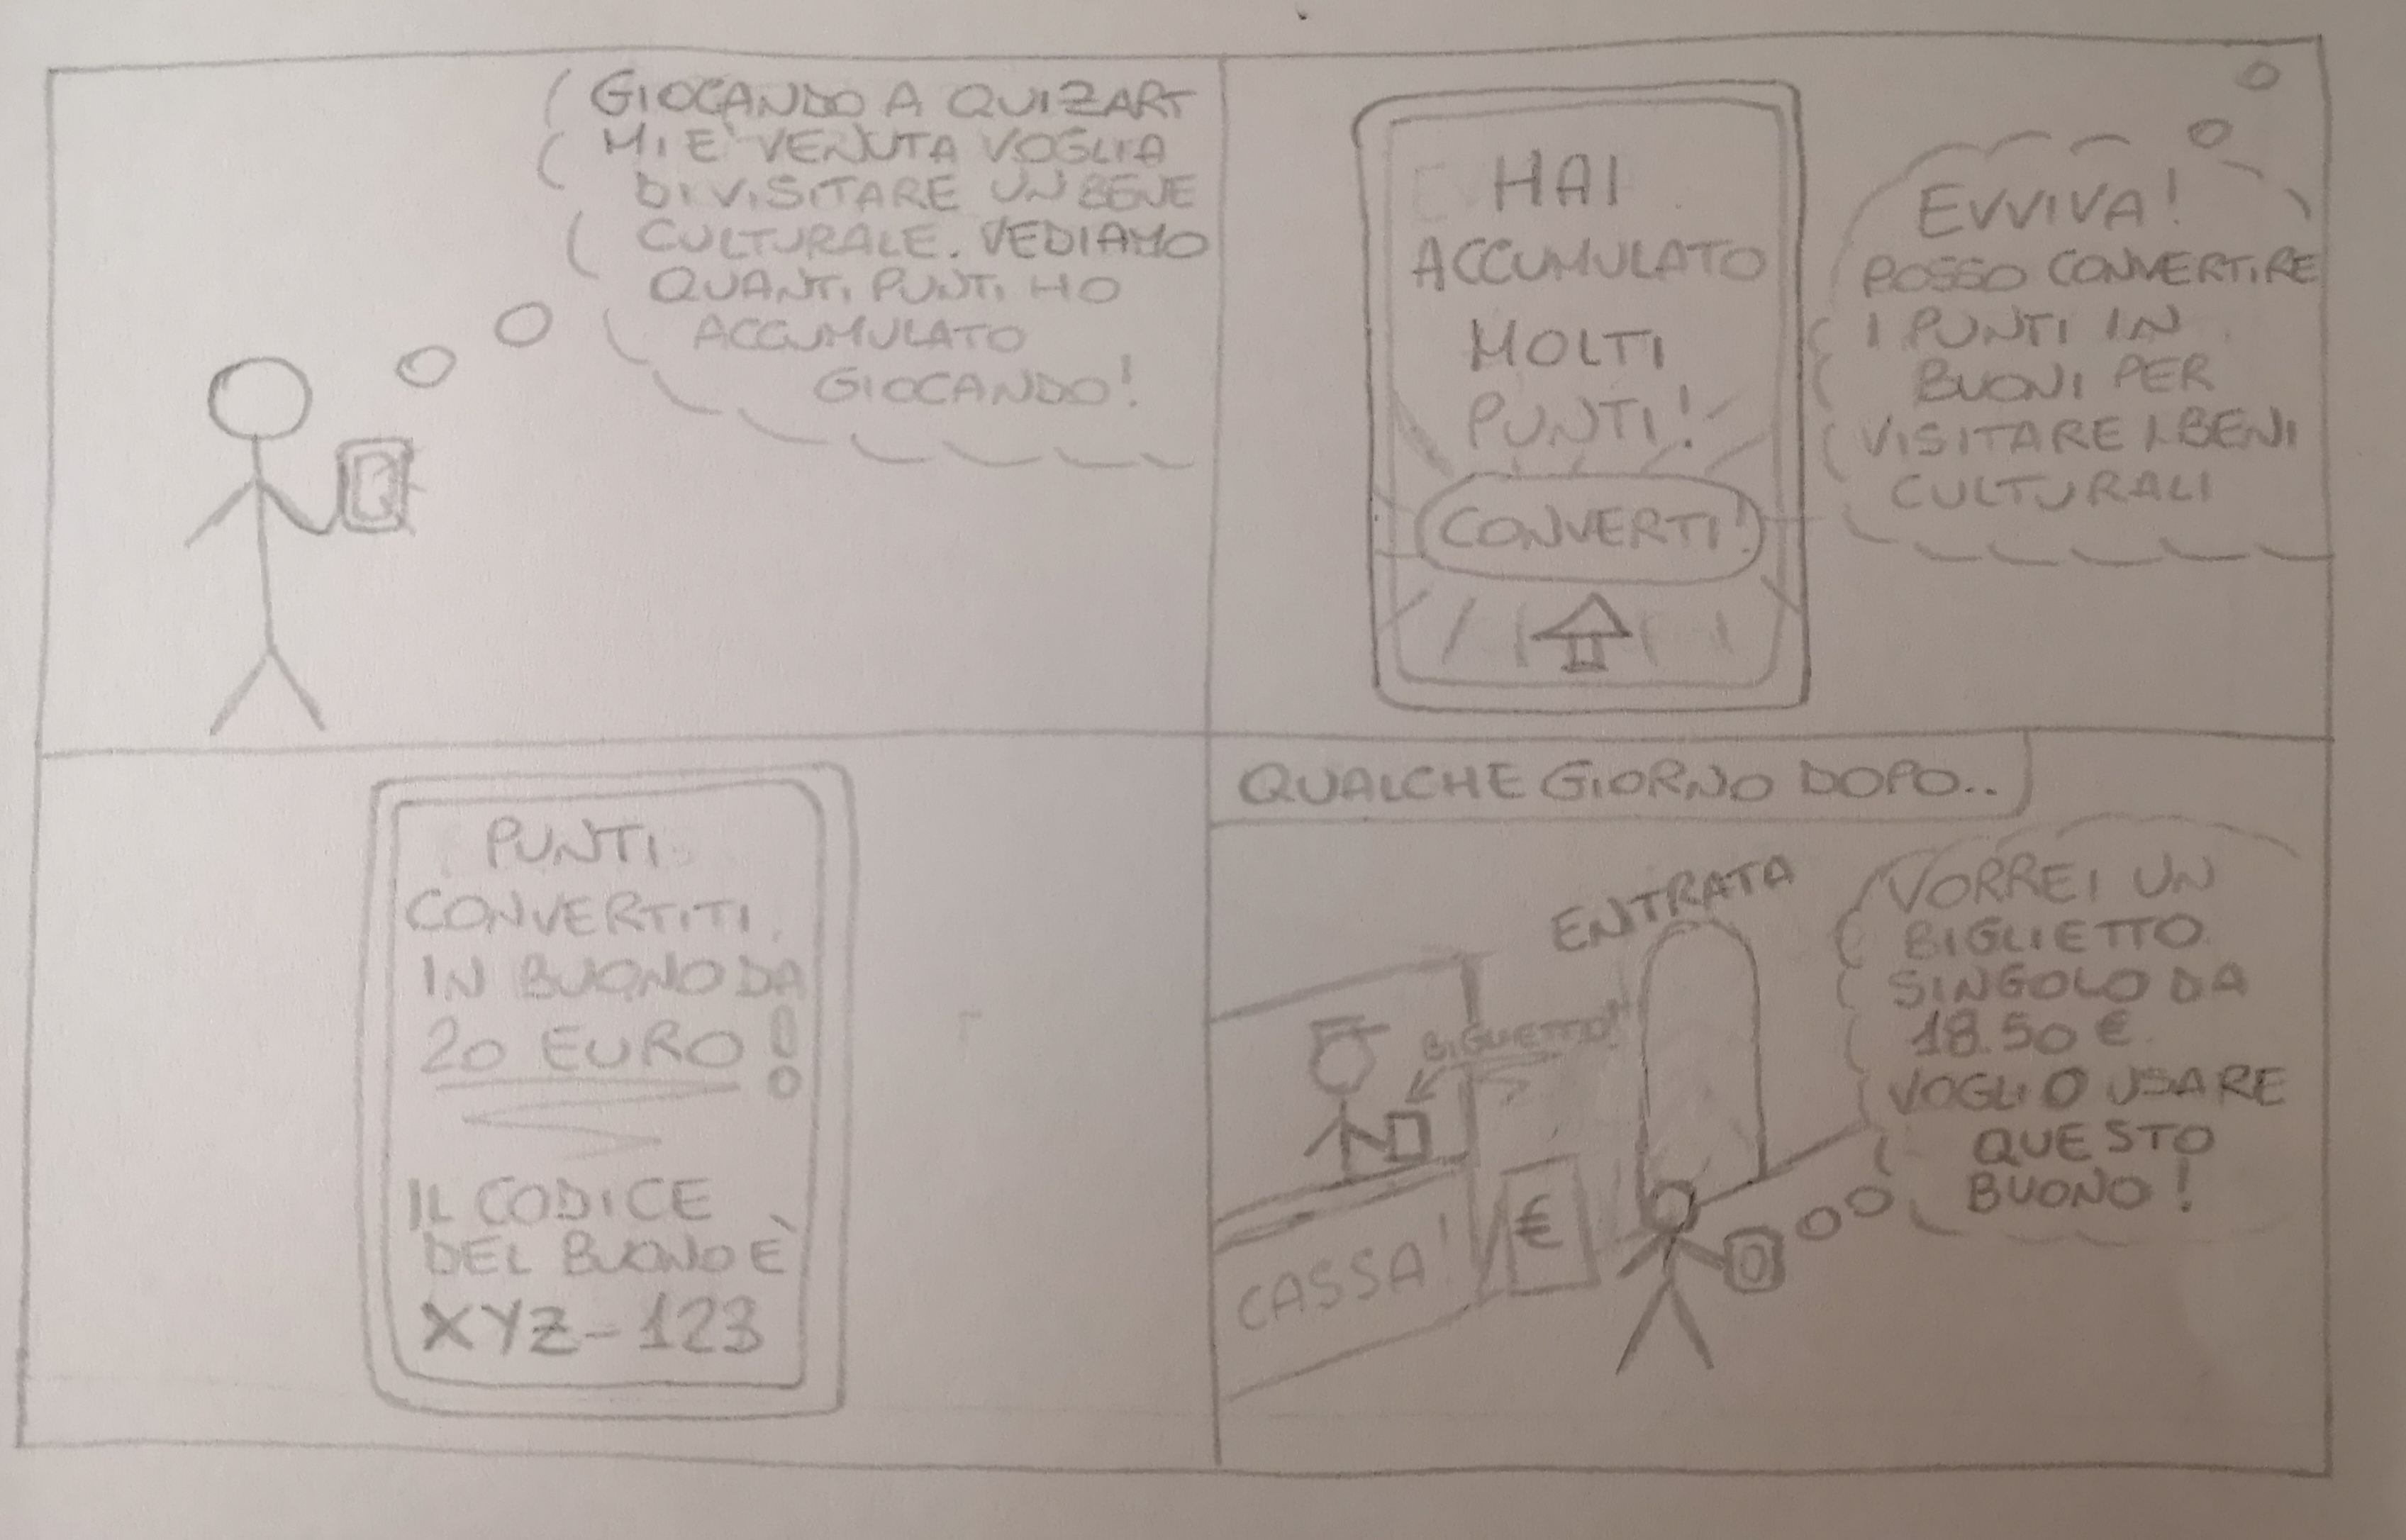 GIOCANDO A QUIZART
MI E' VENUTA VOGLIA
DI VISITARE UN BENE
CULTURALE. VEDIAMO
QUANTI PUNTI HO
ACCUMULATO
GIOCANDO!
HAI
ACCUMULATO
MOLTI
PUNTI!
CONVERTI!
EVVIVA!
POSSO CONVERTIRE
I PUNTI IN
BUONI PER
VISITARE I BENI
CULTURALI
PUNTI
CONVERTITI
IN BUONO DA
20 EURO!
IL CODICE
DEL BUONO È
XYZ-123
QUALCHE GIORNO DOPO..
ENTRATA
BIGLIETTO!
CASSA!
€
VORREI UN
BIGLIETTO
SINGOLO DA
18.50 €.
VOGLIO USARE
QUESTO
BUONO!